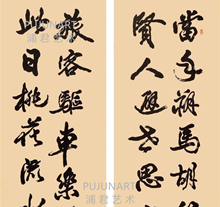 當年朔馬胡
賢人避世思
旅客驅車
此日桃花流水
PUJUNART
浦君艺术
PUJUNART
浦君艺术